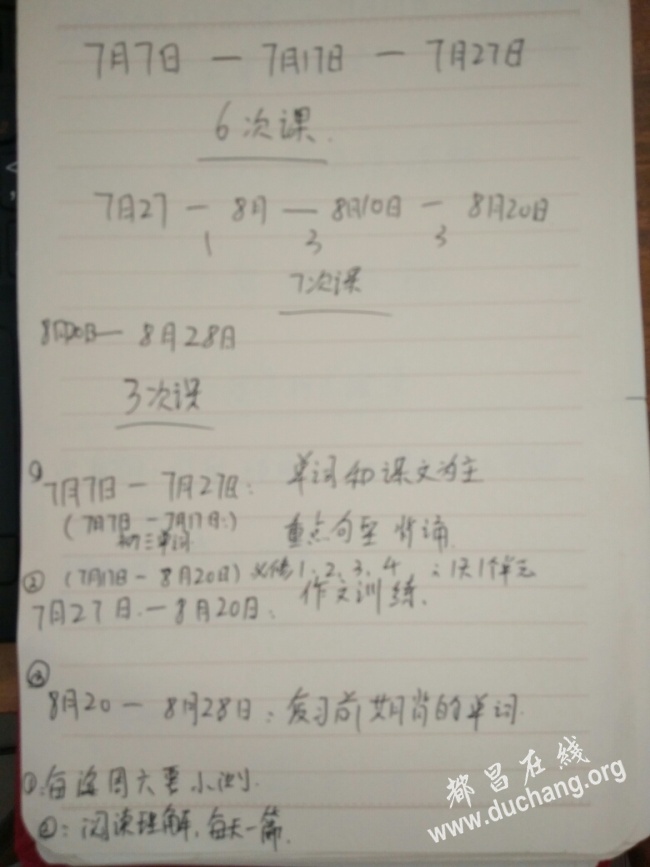 7月7日 — 7月17日 — 7月27日
6次课.
7月27 — 8月 — 8月10日 — 8月20日
1 3 3
7次课
8月20日— 8月28日
3次课
① 7月7日 — 7月27日: 单词和课文为主
(7月7日 — 7月17日:) 重点句型 背诵.
初三单词
② (7月17日 - 8月20日) 必修1、2、3、4 :1天1个单元
7月27日.—8月20日: 作文训练.
③
8月20 — 8月28日:复习前期背的单词.
①:每逢周六要小测.
②:阅读理解,每天一篇.
都昌在線
www.duchang.org